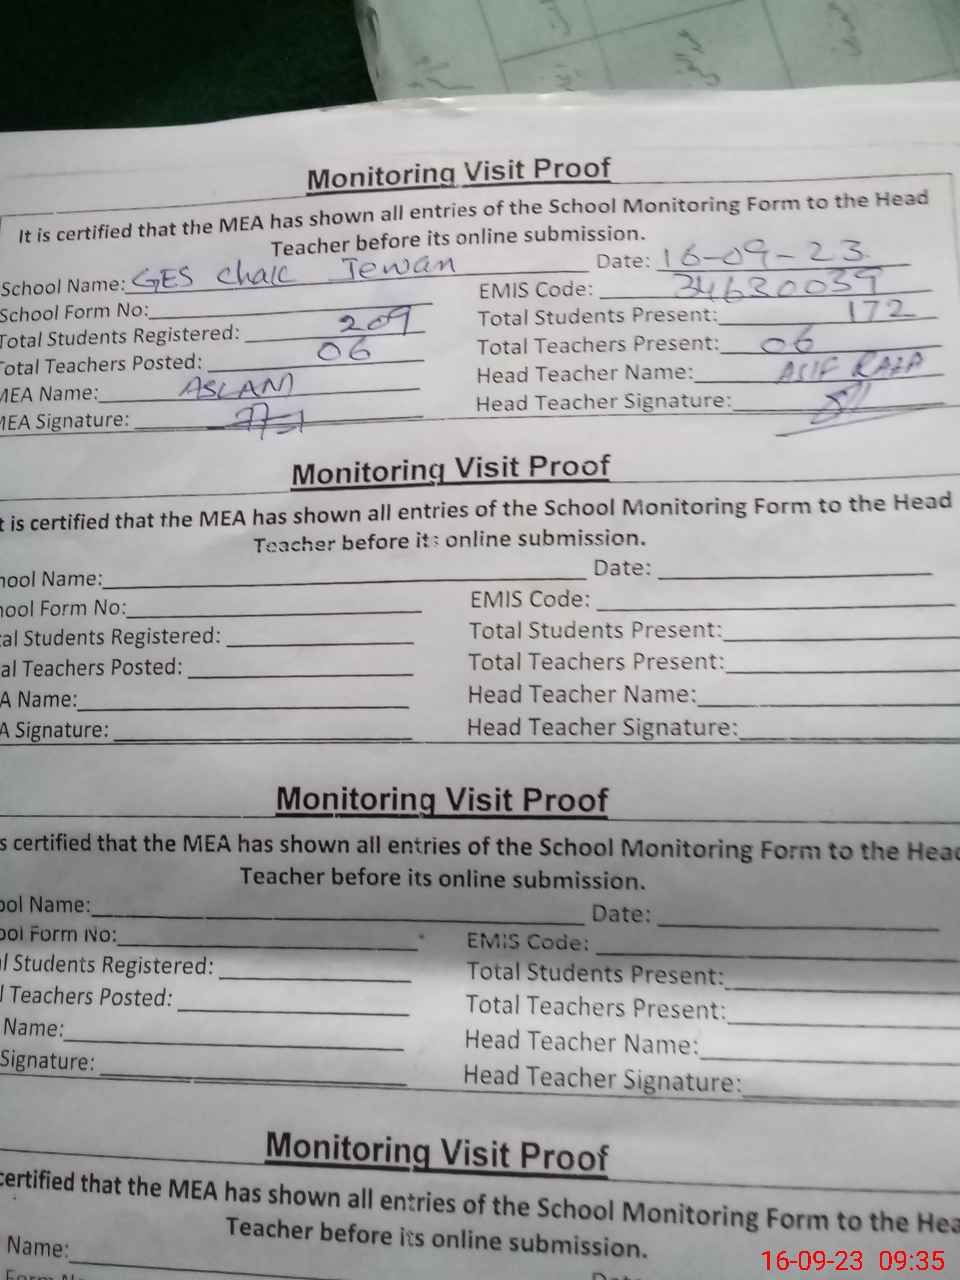 Monitoring Visit Proof
It is certified that the MEA has shown all entries of the School Monitoring Form to the Head
Teacher before its online submission.
School Name: GES Chak Jewan Date: 16-09-23
School Form No: EMIS Code: 34630039
Total Students Registered: 209 Total Students Present: 172
Total Teachers Posted: 06 Total Teachers Present: 06
MEA Name: ASLAM Head Teacher Name: ASIF RAZA
MEA Signature: Head Teacher Signature:
Monitoring Visit Proof
t is certified that the MEA has shown all entries of the School Monitoring Form to the Head
Teacher before its online submission.
hool Name: Date:
hool Form No: EMIS Code:
tal Students Registered: Total Students Present:
al Teachers Posted: Total Teachers Present:
A Name: Head Teacher Name:
A Signature: Head Teacher Signature:
Monitoring Visit Proof
s certified that the MEA has shown all entries of the School Monitoring Form to the Head
Teacher before its online submission.
ool Name: Date:
ool Form No: EMIS Code:
l Students Registered: Total Students Present:
l Teachers Posted: Total Teachers Present:
Name: Head Teacher Name:
Signature: Head Teacher Signature:
Monitoring Visit Proof
certified that the MEA has shown all entries of the School Monitoring Form to the Hea
Teacher before its online submission.
Name:
Form No
16-09-23 09:35